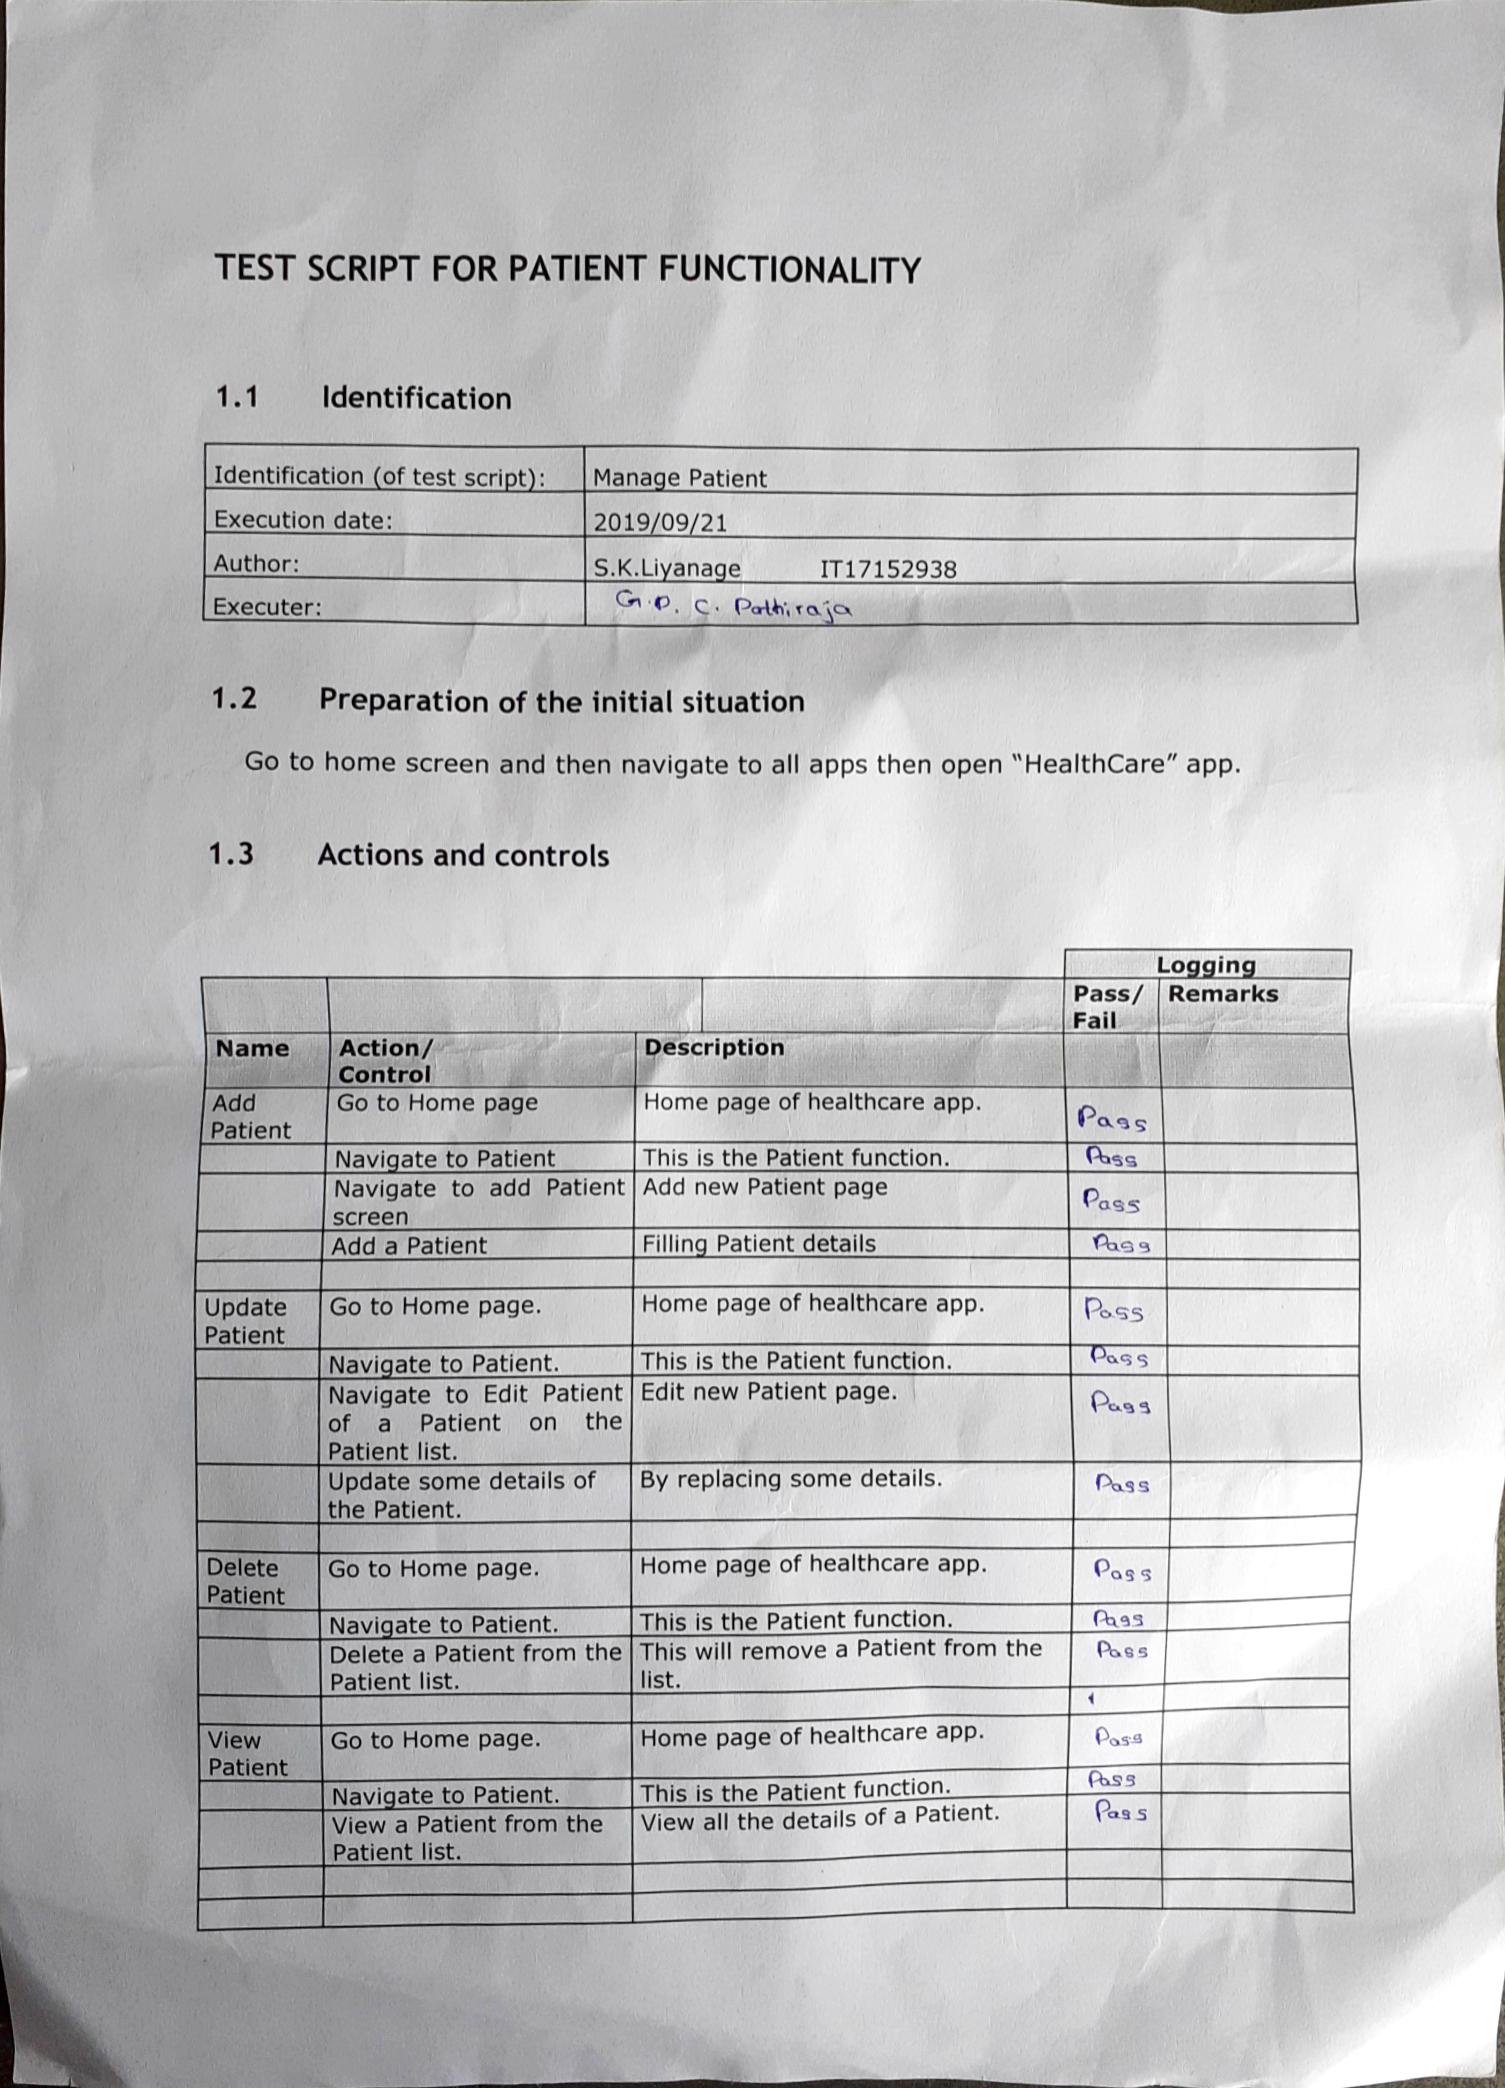 TEST SCRIPT FOR PATIENT FUNCTIONALITY
1.1 Identification
Identification (of test script): Manage Patient
Execution date: 2019/09/21
Author: S.K.Liyanage IT17152938
Executer: G.D. C. Pathiraja
1.2 Preparation of the initial situation
Go to home screen and then navigate to all apps then open “HealthCare” app.
1.3 Actions and controls
Logging
Pass/ Remarks
Fail
Name Action/ Description
Control
Add Go to Home page Home page of healthcare app. Pass
Patient
Navigate to Patient This is the Patient function. Pass
Navigate to add Patient Add new Patient page Pass
screen
Add a Patient Filling Patient details Pass
Update Go to Home page. Home page of healthcare app. Pass
Patient
Navigate to Patient. This is the Patient function. Pass
Navigate to Edit Patient Edit new Patient page. Pass
of a Patient on the
Patient list.
Update some details of By replacing some details. Pass
the Patient.
Delete Go to Home page. Home page of healthcare app. Pass
Patient
Navigate to Patient. This is the Patient function. Pass
Delete a Patient from the This will remove a Patient from the Pass
Patient list. list.
View Go to Home page. Home page of healthcare app. Pass
Patient
Navigate to Patient. This is the Patient function. Pass
View a Patient from the View all the details of a Patient. Pass
Patient list.